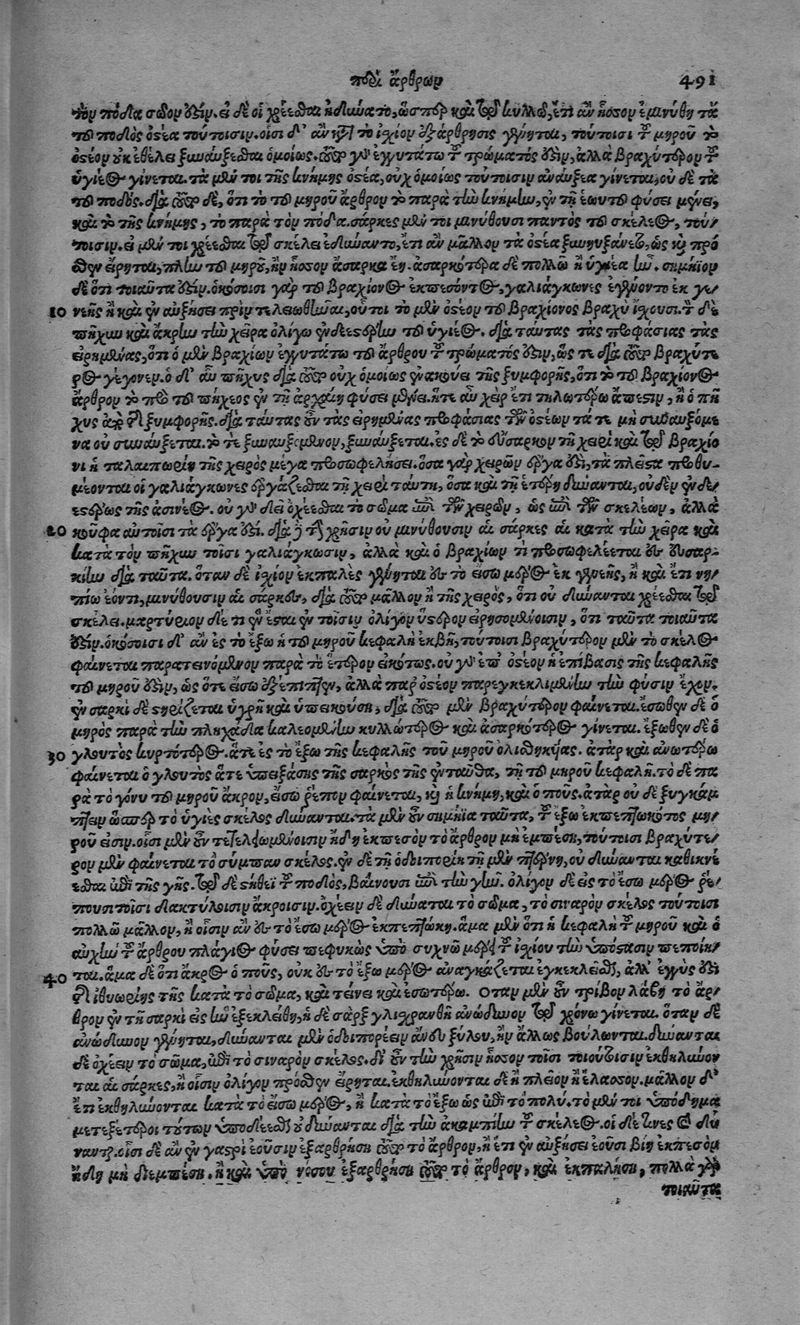 περὶ ἄρθρων 491
τὸν πόδα σῶον εἶναι. εἰ δὲ οἱ χρέεσθαι ἠδύνατο, ὥσπερ καὶ τῷ κυλλῷ, ἔτι ἂν ἧσσον ἐμινύθη τὰ
τοῦ ποδὸς ὀστέα τούτοισιν. οἷσι δ' ἂν κατὰ τὸ ἰσχίον ἐξάρθρησις γένηται, τούτοισι τοῦ μηροῦ τὸ
ὀστέον οὐκ ἐθέλει ξυναύξεσθαι ὁμοίως. ἐγγυτάτω τοῦ τρώματός ἐστιν, ἀλλὰ βραχύτερον τοῦ
ὑγιέος γίνεται. τὰ μέν τοι τῆς κνήμης ὀστέα, οὐχ ὁμοίως τούτοισιν ἀναυξέα γίνεται, οὐδὲ τὰ
τοῦ ποδός. διὰ τόδε, ὅτι τὸ τοῦ μηροῦ ἄρθρον τὸ παρὰ τὴν κνήμην, ἐν τῇ ἑωυτοῦ φύσει μένει,
καὶ τὸ τῆς κνήμης, τὸ παρὰ τὸν πόδα. σάρκες μέν τοι μινύθουσι παντὸς τοῦ σκέλεος, τού-
τοισιν. εἰ μέν τοι χρέεσθαι τῷ σκέλει ἐδύναντο, ἔτι ἂν μᾶλλον τὰ ὀστέα ξυνηυξάνετο, ὡς καὶ πρό
σθεν εἴρηται, πλὴν τοῦ μηροῦ, κἂν ἧσσον ἄσαρκα εἴη. ἀσαρκότερα δὲ πολλῷ ἢ ὑγιέα ἦν. σημήϊον
δὲ ὅτι τοιαῦτά ἐστιν. ὁκόσοισι γὰρ τοῦ βραχίονος ἐκπεσόντος, γαλιάγκωνες ἐγένοντο ἐκ γε-
10 νεῆς ἢ καὶ ἐν αὐξήσει πρὶν τελειωθῆναι, οὗτοι τὸ μὲν ὀστέον τοῦ βραχίονος βραχὺ ἴσχουσι. τὸν δὲ
πῆχυν καὶ ἄκρην τὴν χεῖρα ὀλίγῳ ἐνδεεστέρην τοῦ ὑγιέος. διὰ ταύτας τὰς προφάσιας τὰς
εἰρημένας, ὅτι ὁ μὲν βραχίων ἐγγυτάτω τοῦ ἄρθρου τοῦ τρώματός ἐστιν, ὥστε διὰ τοῦτο βραχύτε
ρος γέγονεν. ὁ δ' αὖ πῆχυς διὰ τοῦτο οὐχ ὁμοίως ἐνακούει τῆς ξυμφορῆς, ὅτι τὸ τοῦ βραχίονος
ἄρθρον τὸ πρὸς τοῦ πήχεος ἐν τῇ ἀρχαίῃ φύσει μένει. ἥ τε αὖ χεὶρ ἔτι τηλοτέρω ἄπεστιν, ἢ ὁ πῆ
χυς ἀπὸ τῆς ξυμφορῆς. διὰ ταύτας οὖν τὰς εἰρημένας προφάσιας τῶν ὀστέων τά τε μὴ συναυξόμε
να οὐ συναύξεται. τά τε ξυναυξόμενα, ξυναύξεται. ἐς δὲ τὸ εὔσαρκον τῇ χειρὶ καὶ τῷ βραχίο
νι ἡ ταλαιπωρίη τῆς χειρὸς μέγα προσωφελήσει. ὅσα γὰρ χειρῶν ἔργα ἐστὶ, τὰ πλεῖστα προθυ-
μέονται οἱ γαλιάγκωνες ἐργάζεσθαι τῇ χειρὶ ταύτῃ, ὅσα καὶ τῇ ἑτέρῃ δύνανται, οὐδὲν ἐνδε-
εστέρως τῆς ἀσινέος. οὐ γὰρ δεῖ ὀχέεσθαι τὸ σῶμα ἐπὶ τῶν χειρῶν, ὡς ἐπὶ τῶν σκελέων, ἀλλὰ
20 κοῦφα αὐτοῖσι τὰ ἔργα ἐστί. διὰ δὲ τὴν χρῆσιν οὐ μινύθουσιν αἱ σάρκες αἱ κατὰ τὴν χεῖρα καὶ
κατὰ τὸν πῆχυν τοῖσι γαλιάγκωσιν, ἀλλὰ καὶ ὁ βραχίων τι προσωφελέεται ἐς εὐσαρ-
κίην διὰ ταῦτα. ὅταν δὲ ἰσχίον ἐκπαλὲς γένηται ἐς τὸ εἴσω μέρος ἐκ γενεῆς, ἢ καὶ ἔτι νη-
πίῳ ἐόντι, μινύθουσιν αἱ σάρκες, διὰ τοῦτο μᾶλλον ἢ τῆς χειρὸς, ὅτι οὐ δύνανται χρέεσθαι τῷ
σκέλει. μαρτύριον δέ τι ἐνέσται ἐν τοῖσιν ὀλίγον ὕστερον εἰρησομένοισιν, ὅτι ταῦτα τοιαῦτά
ἐστιν. ὁκόσοισι δ' ἂν ἐς τὸ ἔξω ἡ τοῦ μηροῦ κεφαλὴ ἐκβῇ, τούτοισι βραχύτερον μὲν τὸ σκέλος
φαίνεται παρατεινόμενον παρὰ τὸ ἕτερον εἰκότως. οὐ γὰρ ἐπ' ὀστέον ἡ ἐπίβασις τῆς κεφαλῆς
τοῦ μηροῦ ἐστιν, ὡς ὅτε εἴσω ἐξεπέπτωκεν, ἀλλὰ παρ' ὀστέον παρεγκεκλιμένην τὴν φύσιν ἔχον.
ἐν σαρκὶ δὲ στηρίζεται ὑγρῇ καὶ ὑπεικούσῃ, διὰ τοῦτο μὲν βραχύτερον φαίνεται. ἔσωθεν δὲ ὁ
μηρὸς παρὰ τὴν πληχάδα καλεομένην κυλλότερος καὶ ἀσαρκότερος γίνεται. ἔξωθεν δὲ ὁ
30 γλουτὸς κυρτότερος. ἅτε ἐς τὸ ἔξω τῆς κεφαλῆς τοῦ μηροῦ ὀλισθηκυίας. ἀτὰρ καὶ ἀνωτέρω
φαίνεται ὁ γλουτὸς ἅτε ὑπειξάσης τῆς σαρκὸς τῆς ἐνταῦθα, τῇ τοῦ μηροῦ κεφαλῇ. τὸ δὲ πα
ρὰ τὸ γόνυ τοῦ μηροῦ ἄκρον, εἴσω ῥέπον φαίνεται, καὶ ἡ κνήμη, καὶ ὁ ποῦς. ἀτὰρ οὐδὲ ξυγκάμ
πτειν ὥσπερ τὸ ὑγιὲς σκέλος δύνανται. τὰ μὲν οὖν σημήϊα ταῦτα, τοῦ ἔξω ἐκπεπτωκότος μη-
ροῦ εἰσιν. οἷσι μὲν οὖν τετελειωμένοισιν ἤδη ἐκπεσὸν τὸ ἄρθρον μὴ ἐμπέσῃ, τούτοισι βραχύτε-
ρον μὲν φαίνεται τὸ σύμπαν σκέλος. ἐν δὲ τῇ ὁδοιπορίῃ τῇ μὲν πτέρνῃ, οὐ δύνανται καθικνέ
εσθαι ἐπὶ τῆς γῆς. τῷ δὲ στήθεϊ τοῦ ποδὸς, βαίνουσι ἐπὶ τὴν γῆν. ὀλίγον δὲ εἰς τὸ ἔσω μέρος ῥέ-
πουσι τοῖσι δακτύλοισιν ἄκροισιν. ὀχέειν δὲ δύναται τὸ σῶμα, τὸ σιναρὸν σκέλος τούτοισι
πολλῷ μᾶλλον, ἢ οἷσιν ἂν ἐς τὸ ἔσω μέρος ἐκπεπτώκῃ. ἅμα μὲν ὅτι ἡ κεφαλὴ τοῦ μηροῦ καὶ ὁ
αὐχὴν τοῦ ἄρθρου πλάγιος φύσει πεφυκὼς ὑπὸ συχνῷ μέρει τοῦ ἰσχίου τὴν ὑπόστασιν πεποίη-
40 ται. ἅμα δὲ ὅτι ἄκρος ὁ ποῦς, οὐκ ἐς τὸ ἔξω μέρος ἀναγκάζεται ἐγκεκλεῖσθαι, ἀλλ' ἐγγὺς ἐστὶ
τῆς ἰθυωρίης τῆς κατὰ τὸ σῶμα, καὶ τείνει καὶ ἐσωτέρω. Ὅταν μὲν οὖν τρίβον λάβῃ τὸ ἄρ-
θρον ἐν τῇ σαρκὶ εἰς ἣν ἐξεκλείθη, ἡ δὲ σὰρξ γλισχρανθῇ ἀνώδυνον τῷ χρόνῳ γίνεται. ὅταν δὲ
ἀνώδυνον γένηται, δύνανται μὲν ὁδοιπορέειν ἄνευ ξύλου, ἢν ἄλλως βούλωνται. δύνανται
δὲ ὀχέειν τὸ σῶμα, ἐπὶ τὸ σιναρὸν σκέλος. δι' οὖν τὴν χρῆσιν ἧσσον τοῖσι τοιούτοισιν ἐκθηλύνον
ται αἱ σάρκες, ἢ οἷσιν ὀλίγον πρόσθεν εἴρηται. ἐκθηλύνονται δὲ ἢ πλεῖον ἢ ἔλασσον. μᾶλλον δ'
ἔτι ἐκθηλύνονται κατὰ τὸ ἔσω μέρος, ἢ κατὰ τὸ ἔξω ὡς ἐπὶ τὸ πολύ. τὸ μέν τοι ὑπόδημα
μετεξέτεροι τούτων ὑποδέεσθαι οὐ δύνανται διὰ τὴν ἀκαμπίην τοῦ σκέλεος. οἱ δέ τινες καὶ δύ
νανται. οἷσι δὲ ἂν ἐν γαστρὶ ἐοῦσιν ἐξαρθρήσῃ τοῦτο τὸ ἄρθρον, ἢ ἔτι ἐν αὐξήσει ἐοῦσι βίῃ ἐκπεσὸν
ἤδη μὴ ἐμπέσῃ. ἢ καὶ ὑπὸ νούσου ἐξαρθρήσῃ τοῦτο τὸ ἄρθρον, καὶ ἐκπαλήσῃ, πολλὰ γὰρ
τοιαῦτα